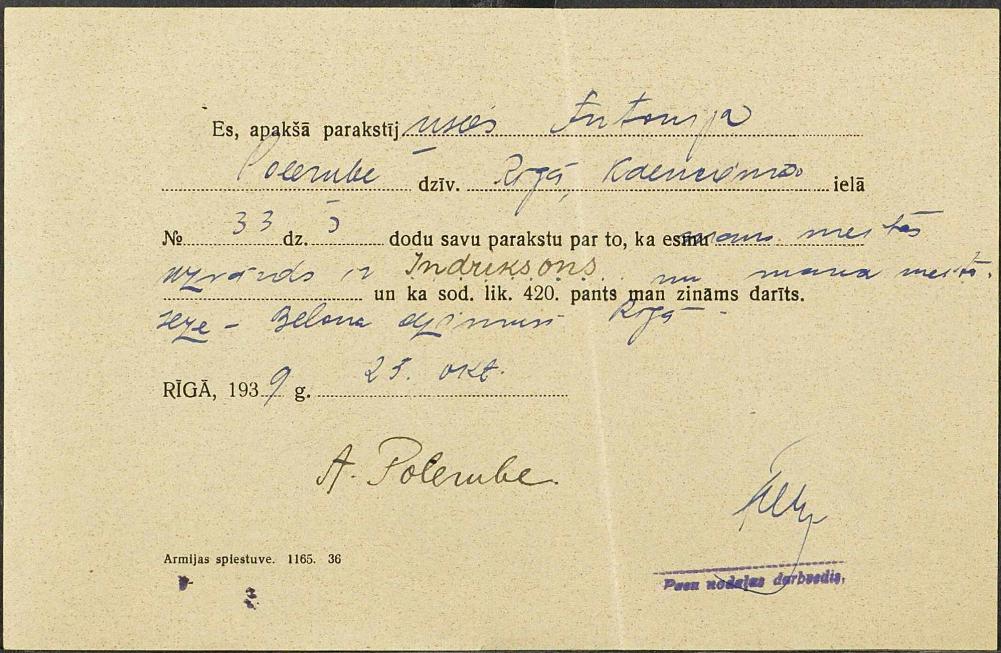 Es, apakšā parakstīj usēs Antonija
Polerube dzīv. Rīgā, ielā
№ 33 dz. 5 dodu savu parakstu par to, ka esmu manas meitas
uzvārds ir Indriksons nu mana meita
un ka sod. lik. 420. pants man zināms darīts.
Belona dzimusi Rīgā
RĪGĀ, 1939 g. 25. okt.
A. Polerube.
Armijas spiestuve. 1165. 36
Pasu nodaļas darbvedis,